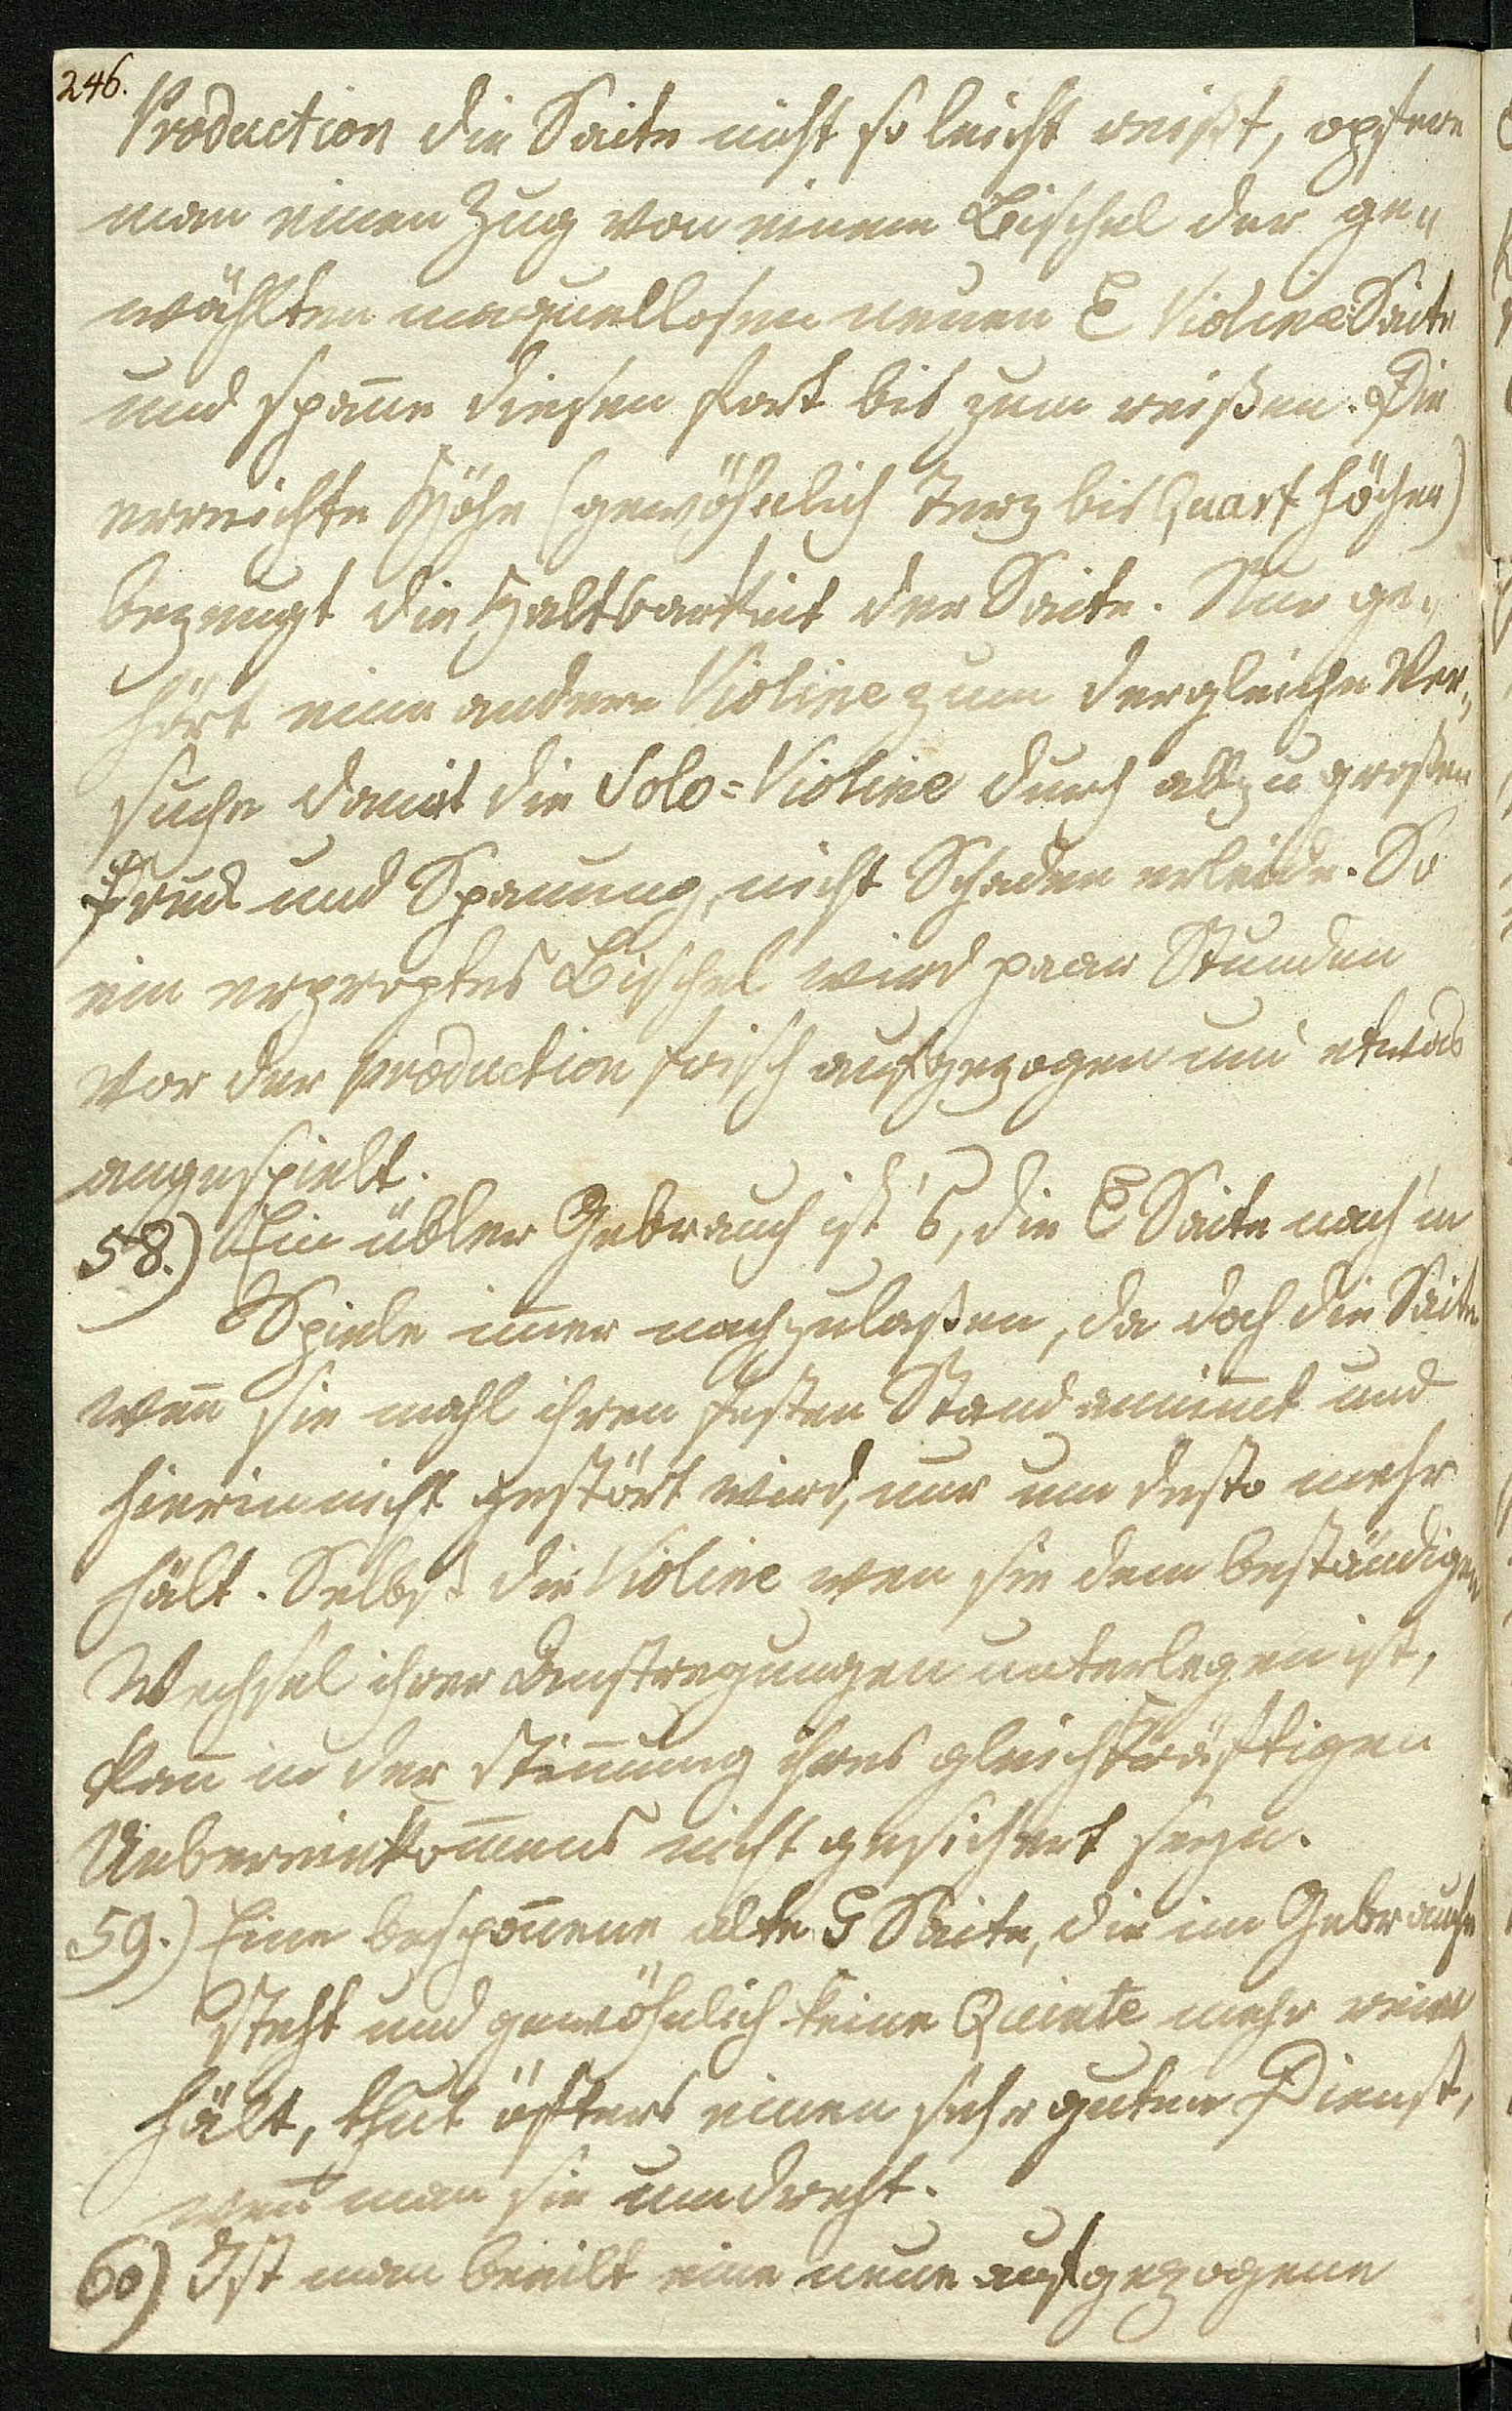 246.
Production die Saite nicht so leicht reißt, opfere
man einen Zug von einem Bischel der ge„
wählten maquellosen neuen E Violine Saite
und spañe diesen fort bis zum reißen. Die
erreichte Höhe (gewöhnlich Terz bis Quart höher)
bezeugt die Haltbarkeit der Saite. Nur ge„
hört eine andere Violine zum dergleichen Ver„
suche damit die Solo=Violine durch allzu großen
Druck und Spannung, nicht Schaden erleide. So
ein erproptes Bischel wird paar Stunden
vor der Production frisch aufgezogen und etwas
angespielt.
58.) Ein übler Gebrauch ist's, die E Saite nach'm
Spiele im̄er nachzulaßen, da doch die Saite
weñ sie mahl ihren festen Stand annim̄t und
hierin nicht gestört wird, nur um desto mehr
hält. Selbst die Violine wen sie dem beständigen
Wechsel ihrer Anstregungen unterlegen ist,
kañ in der Stim̄ung ihres gleichkräftigen
Uebereinkom̄ens nicht gesichert seyn.
59.) Eine bespoñene alte G Saite, die im Gebrauche
steht und gewöhnlich keine Quinte mehr rein
hält, thut öfters einen sehr guten Dienst,
weñ man sie umdreht.
60) Ist man beeilt eine neue aufgezogene